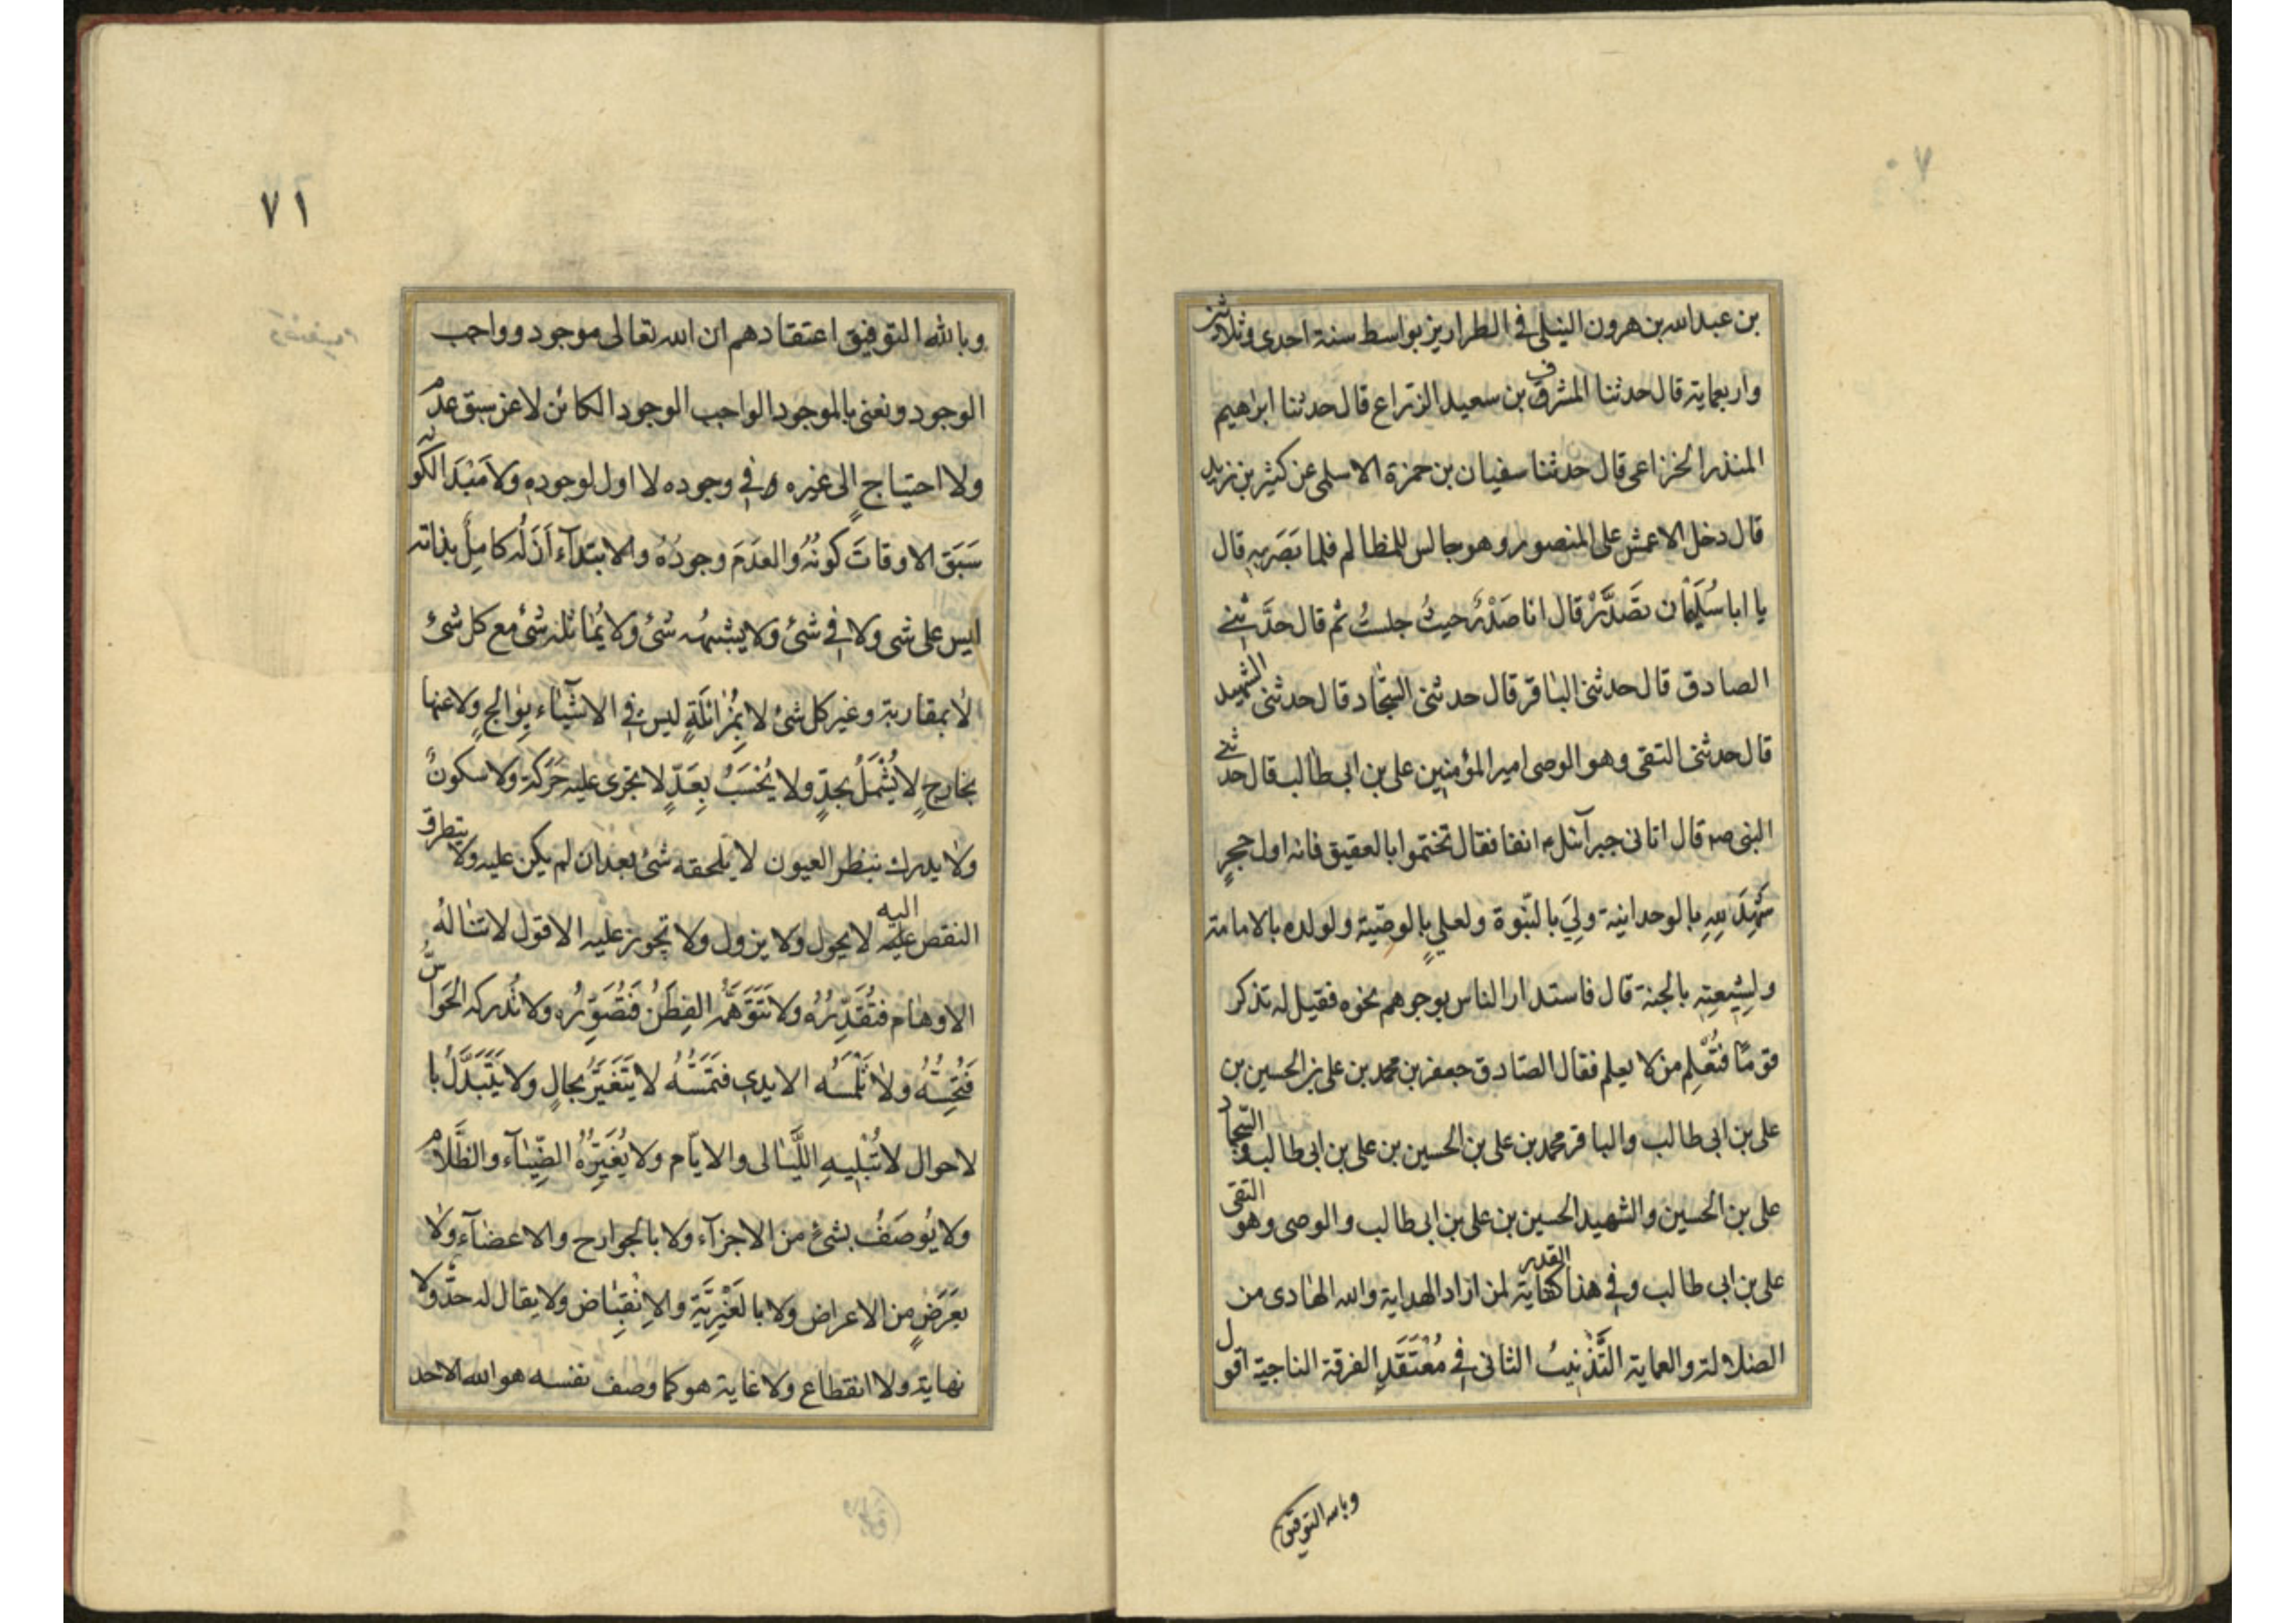 ٧٠
بن عبدالله بن هرون النيلى فى الطرارين بواسط سنة احدى وثلاثين
واربعماية قال حدثنا المشرف بن سعيد الزراع قال حدثنا ابراهيم
المنذر الخزاعى قال حدثنا سفيان بن حمزة الاسلمى عن كثير بن زيد
قال دخل الاعمش على المنصور وهو جالس للمظالم فلما بَصَر بِه قال
يا ابا سُلَيْمٰان تصَدَّرْ قال انا صَدْرٌ حيثُ جلستُ ثم قال حدَّثنِي
الصادق قال حدثنى البٰاقر قال حدثنى السجّاد قال حدثنى الشهيد
قال حدثنى التقى وهو الوصى امير المؤمنين على بن ابى طالب قال حدثنى
النبى صم قال اتانى جبرآئيل ع انفا فقال تختموا بالعقيق فانه اول حجرٍ
شَهِدَ لِلّهِ بالوحدانية ولِيَ بالنّبوة ولعليٍ بالوصّية ولولده بالامامة
ولِشيعتِهِ بالجنة قال فاستدار الناس بوجوههم نحوه فقيل له تذكر
قومًا فتُعْلِم من لا يعلم فقال الصّادق جعفر بن محمد بن على بن الحسين بن
على بن ابى طالب والباقر محمد بن على بن الحسين بن على بن ابى طالب والسّجاد
على بن الحسين والشهيد الحسين بن على بن ابى طالب والوصى وهو التقى
على بن ابى طالب وفى هذا القدر كفاية لمن اراد الهداية والله الهٰادى من
الضلالة والعماية التَّذْنيبُ الثانى فى مُعْتَقَدِ الفرقة الناجية اقول
وبالله التوفيق
٧١
وبالله التوفيق اعتقادهم ان الله تعالى موجود وواجب
الوجود ونعنى بالموجود الواجب الوجود الكائن لا عن سبق عدم
ولا احتياجٍ الى غيره فى وجوده لا اول لوجودِه ولا مَبْدَا لكونه
سَبَق الاوقاتَ كونُهُ والعدَمَ وجودُهُ والابتدآءَ اَزَلُه كامِلٌ بذاته
ليس على شى ولا فى شئ ولا يشبهُه شئ ولا يُمٰاثله شئ مع كل شئ
لا بمقاربة وغير كل شئ لا بِمُزائَلَةٍ ليس فى الاشْيٰآء بِوٰالجٍ ولا عنها
بخارجٍ لا يُشْمَلُ بحدٍّ ولا يُحْسَبُ بِعَدّ لا تجرى عليه حَرَكة ولا سكونٌ
ولا يدرك بنظر العيون لا يلحقه شئ بعد ان لم يكن عليه ولا يتطرق
النقص عليه اليه لا يحول ولا يزول ولا تجوز عليه الافول لا تنٰاله
الاوهٰام فتُقَدِّرُهُ ولا تَتَوَهَّمُه الفِطَنُ فَتُصَوِّرُه ولا تُدركه الحَوٰاسُّ
فَتُحِسُّهُ ولا تَلْمَسُه الايدى فتَمَسُّهُ لا يَتَغَيَّرُ بحالٍ ولا يَتَبَدَّلُ با
لاحوال لا تُبْلِيهِ اللَّيٰالى والايّام ولا يُغَيِّرُهُ الضِّيٰآء والظَّلٰام
ولا يُوصَفُ بشئ من الاجزآء ولا بالجوارح والاعضٰآء ولا
بعَرَضٍ من الاعراض ولا بالغَيْرِيَّة والاِنْقِبٰاض ولا يقال له حدّ ولا
نهاية ولا انقطاع ولا غاية هو كما وصف نفسه هو الله الاحد